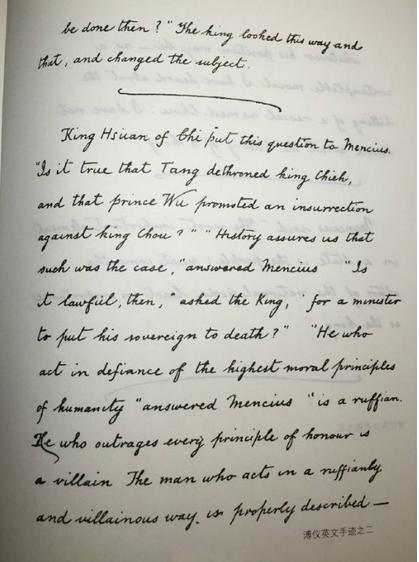 be done then?" The king looked this way and
that, and changed the subject.
King Hsüan of Chi put this question to Mencius.
"Is it true that Tang dethroned king Chieh,
and that prince Wu promoted an insurrection
against king Chou?" "History assures us that
such was the case," answered Mencius "Is
it lawful, then," asked the King, "for a minister
to put his sovereign to death?" "He who
act in defiance of the highest moral principles
of humanity" answered Mencius "is a ruffian.
He who outrages every principle of honour is
a villain The man who acts in a ruffianly
and villainous way, is properly described —
溥仪英文手迹之二